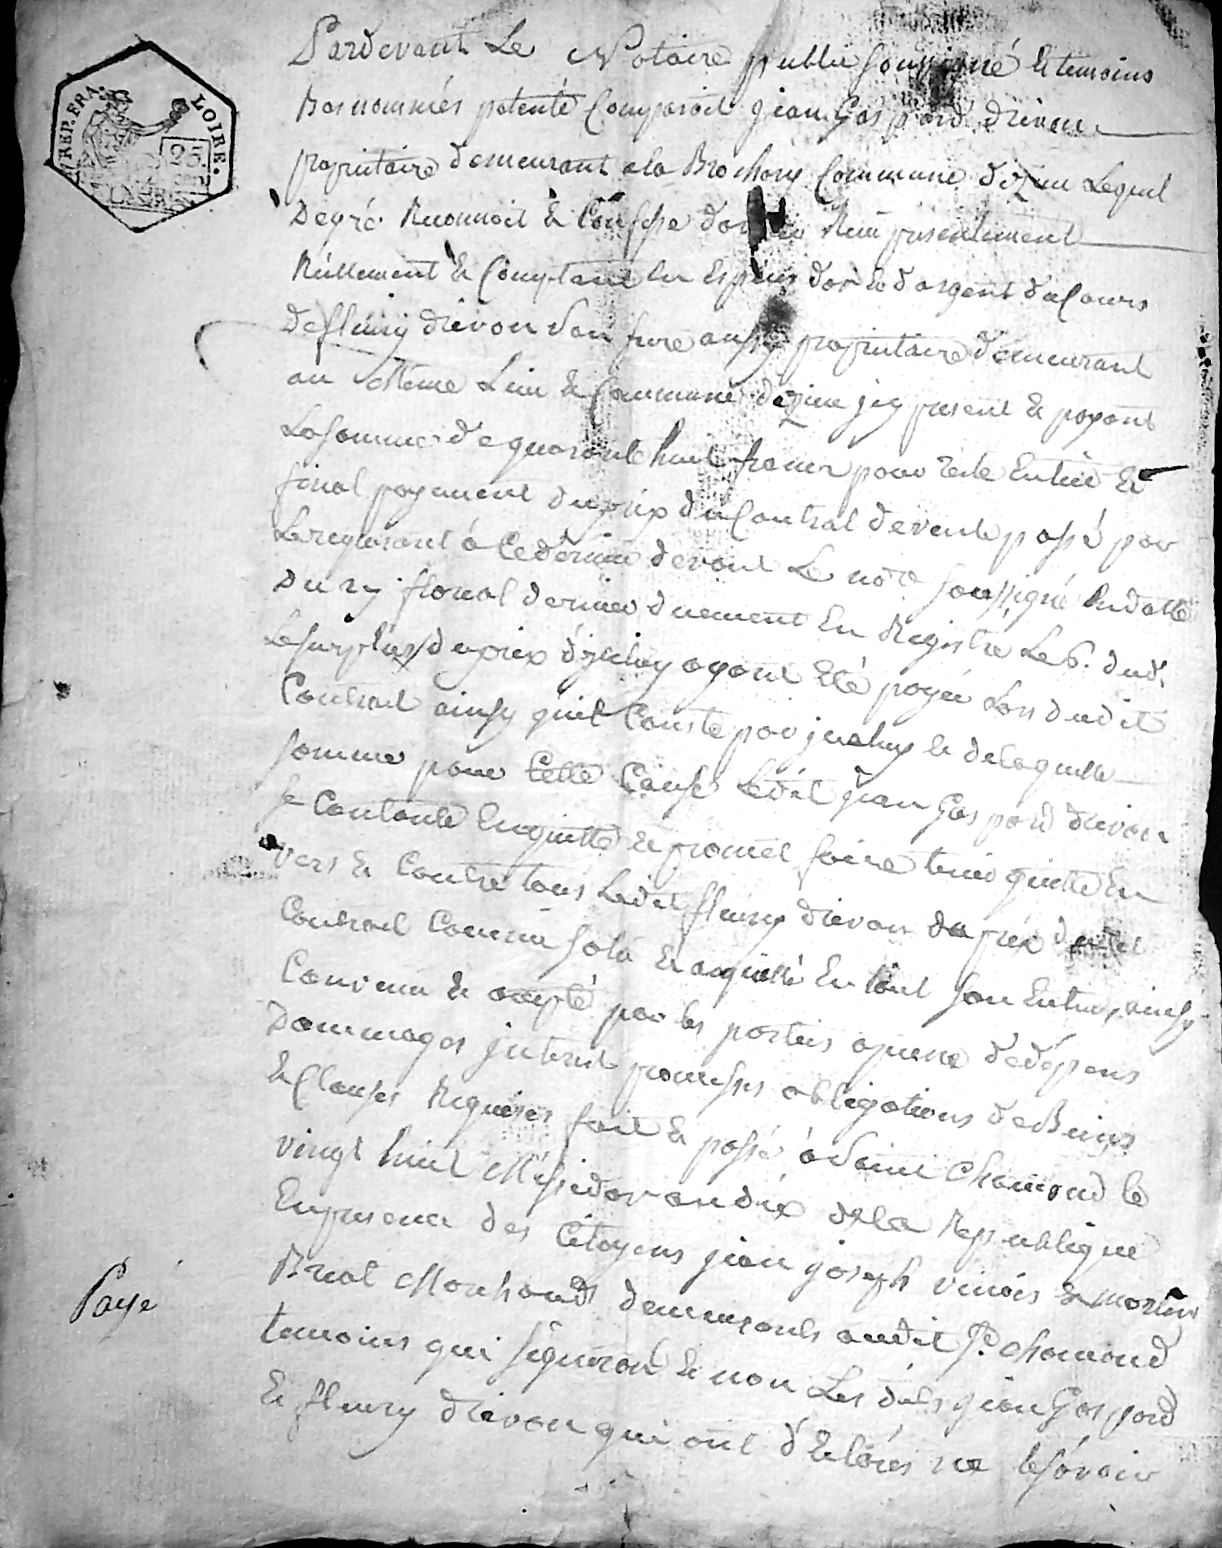 REP. FRA.
LOIRE.
25
Pardevant Le Notaire public soussigné & temoins
Bas nommés patenté Comparoit jean Gaspard drevon
propriétaire demeurant a la Brochery Commune d'izieu Lequel
De gré Reconnoit & Confesse d'avoir Reçu presentement
Réellement & Comptant en Espèces d'or & d'argent du Cours
De fleury drevon son frere aussy propriétaire demeurant
au Même Lieu & Commune d'izieu jcy present & payant
La somme de quarante huit francs pour reste Entier &
final payement du prix du Contrat de vente passé par
Le reçevant à Ce dernier devant Le nore soussigné En datte
Du floreal dernier duement En Registré Le 6. dud.
Le surplus du prix d'jceluy ayant été payée Lors dudit
Contrat ainsy quil Conste par jceluy & de laquelle
somme pour Cette Cause Ledit jean Gaspard drevon
se Contante En quitte & promet faire tenir quitte En
vers & Contre tous Ledit fleury drevon du prix dudit
Contrat Comme soldé & acquitté En tout son Entier, ainsy
Convenu & accepté par les parties a peine de dépens
Dommages jnterets promesses obligations de Biens
& Clauses Requises fait & passé à Saint Chamond le
vingt huit Messidor an dix de la Republique
En presence des Citoyens jean joseph & martin
Brial Marchands demeurants audit St. chamond
temoins qui signeront & non Les dits jean Gaspard
& fleury drevon qui ont déclarés ne le sçavoir
Payé